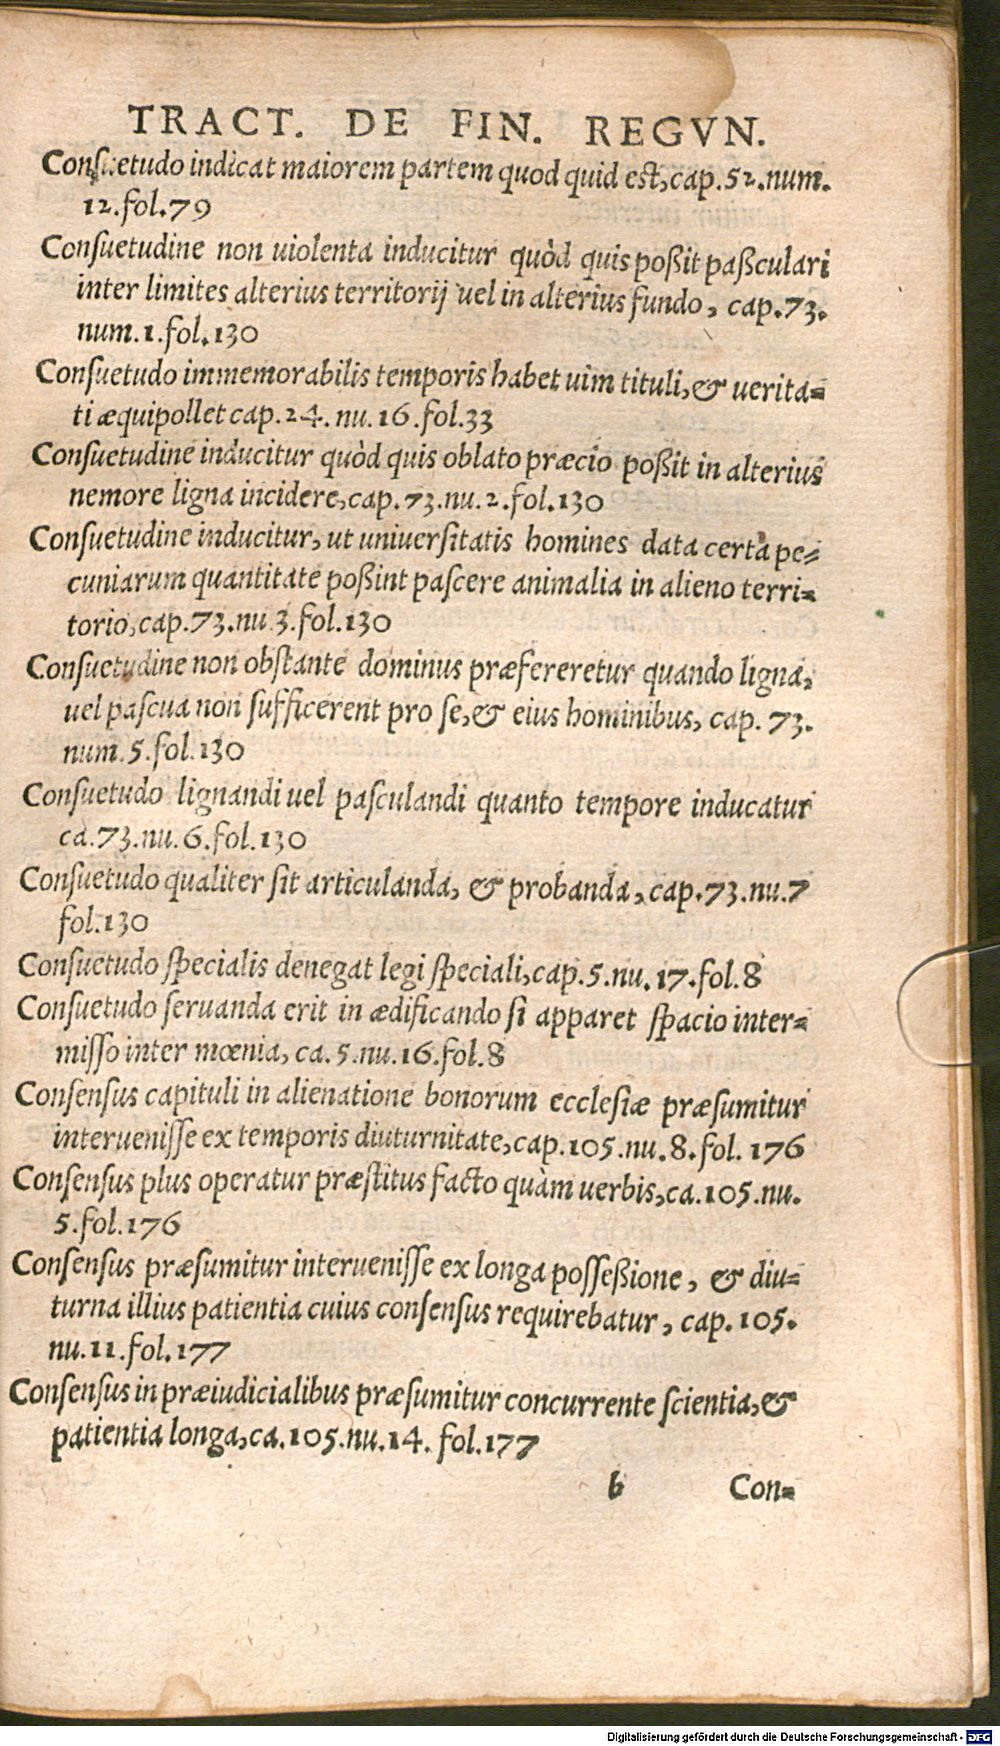 TRACT. DE FIN. REGVN.
Conſuetudo indicat maiorem partem quod quid est, cap. 52. num.
12. fol. 79
Conſuetudine non uiolenta inducitur quòd quis poßit paßculari
inter limites alterius territorij uel in alterius fundo, cap. 73.
num. 1. fol. 130
Conſuetudo immemorabilis temporis habet uim tituli, & uerita=
ti æquipollet cap. 24. nu. 16. fol. 33
Conſuetudine inducitur quòd quis oblato præcio poßit in alterius
nemore ligna incidere, cap. 73. nu. 2. fol. 130
Conſuetudine inducitur, ut uniuerſitatis homines data certa pe=
cuniarum quantitate poßint paſcere animalia in alieno terri=
torio, cap. 73. nu. 3. fol. 130
Conſuetudine non obſtante dominus præfereretur quando ligna,
uel paſcua non ſufficerent pro ſe, & eius hominibus, cap. 73.
num. 5. fol. 130
Conſuetudo lignandi uel paſculandi quanto tempore inducatur
ca. 73. nu. 6. fol. 130
Conſuetudo qualiter ſit articulanda, & probanda, cap. 73. nu. 7
fol. 130
Conſuetudo ſpecialis denegat legi ſpeciali, cap. 5. nu. 17. fol. 8
Conſuetudo ſeruanda erit in ædificando ſi apparet ſpacio inter=
miſſo inter mœnia, ca. 5. nu. 16. fol. 8
Conſenſus capituli in alienatione bonorum eccleſiæ præſumitur
interueniſſe ex temporis diuturnitate, cap. 105. nu. 8. fol. 176
Conſenſus plus operatur præſtitus facto quàm uerbis, ca. 105. nu.
5. fol. 176
Conſenſus præſumitur interueniſſe ex longa poſſeßione, & diu=
turna illius patientia cuius conſenſus requirebatur, cap. 105.
nu. 11. fol. 177
Conſenſus in præiudicialibus præſumitur concurrente ſcientia, &
patientia longa, ca. 105. nu. 14. fol. 177
b Con=
Digitalisierung gefördert durch die Deutsche Forschungsgemeinschaft - DFG